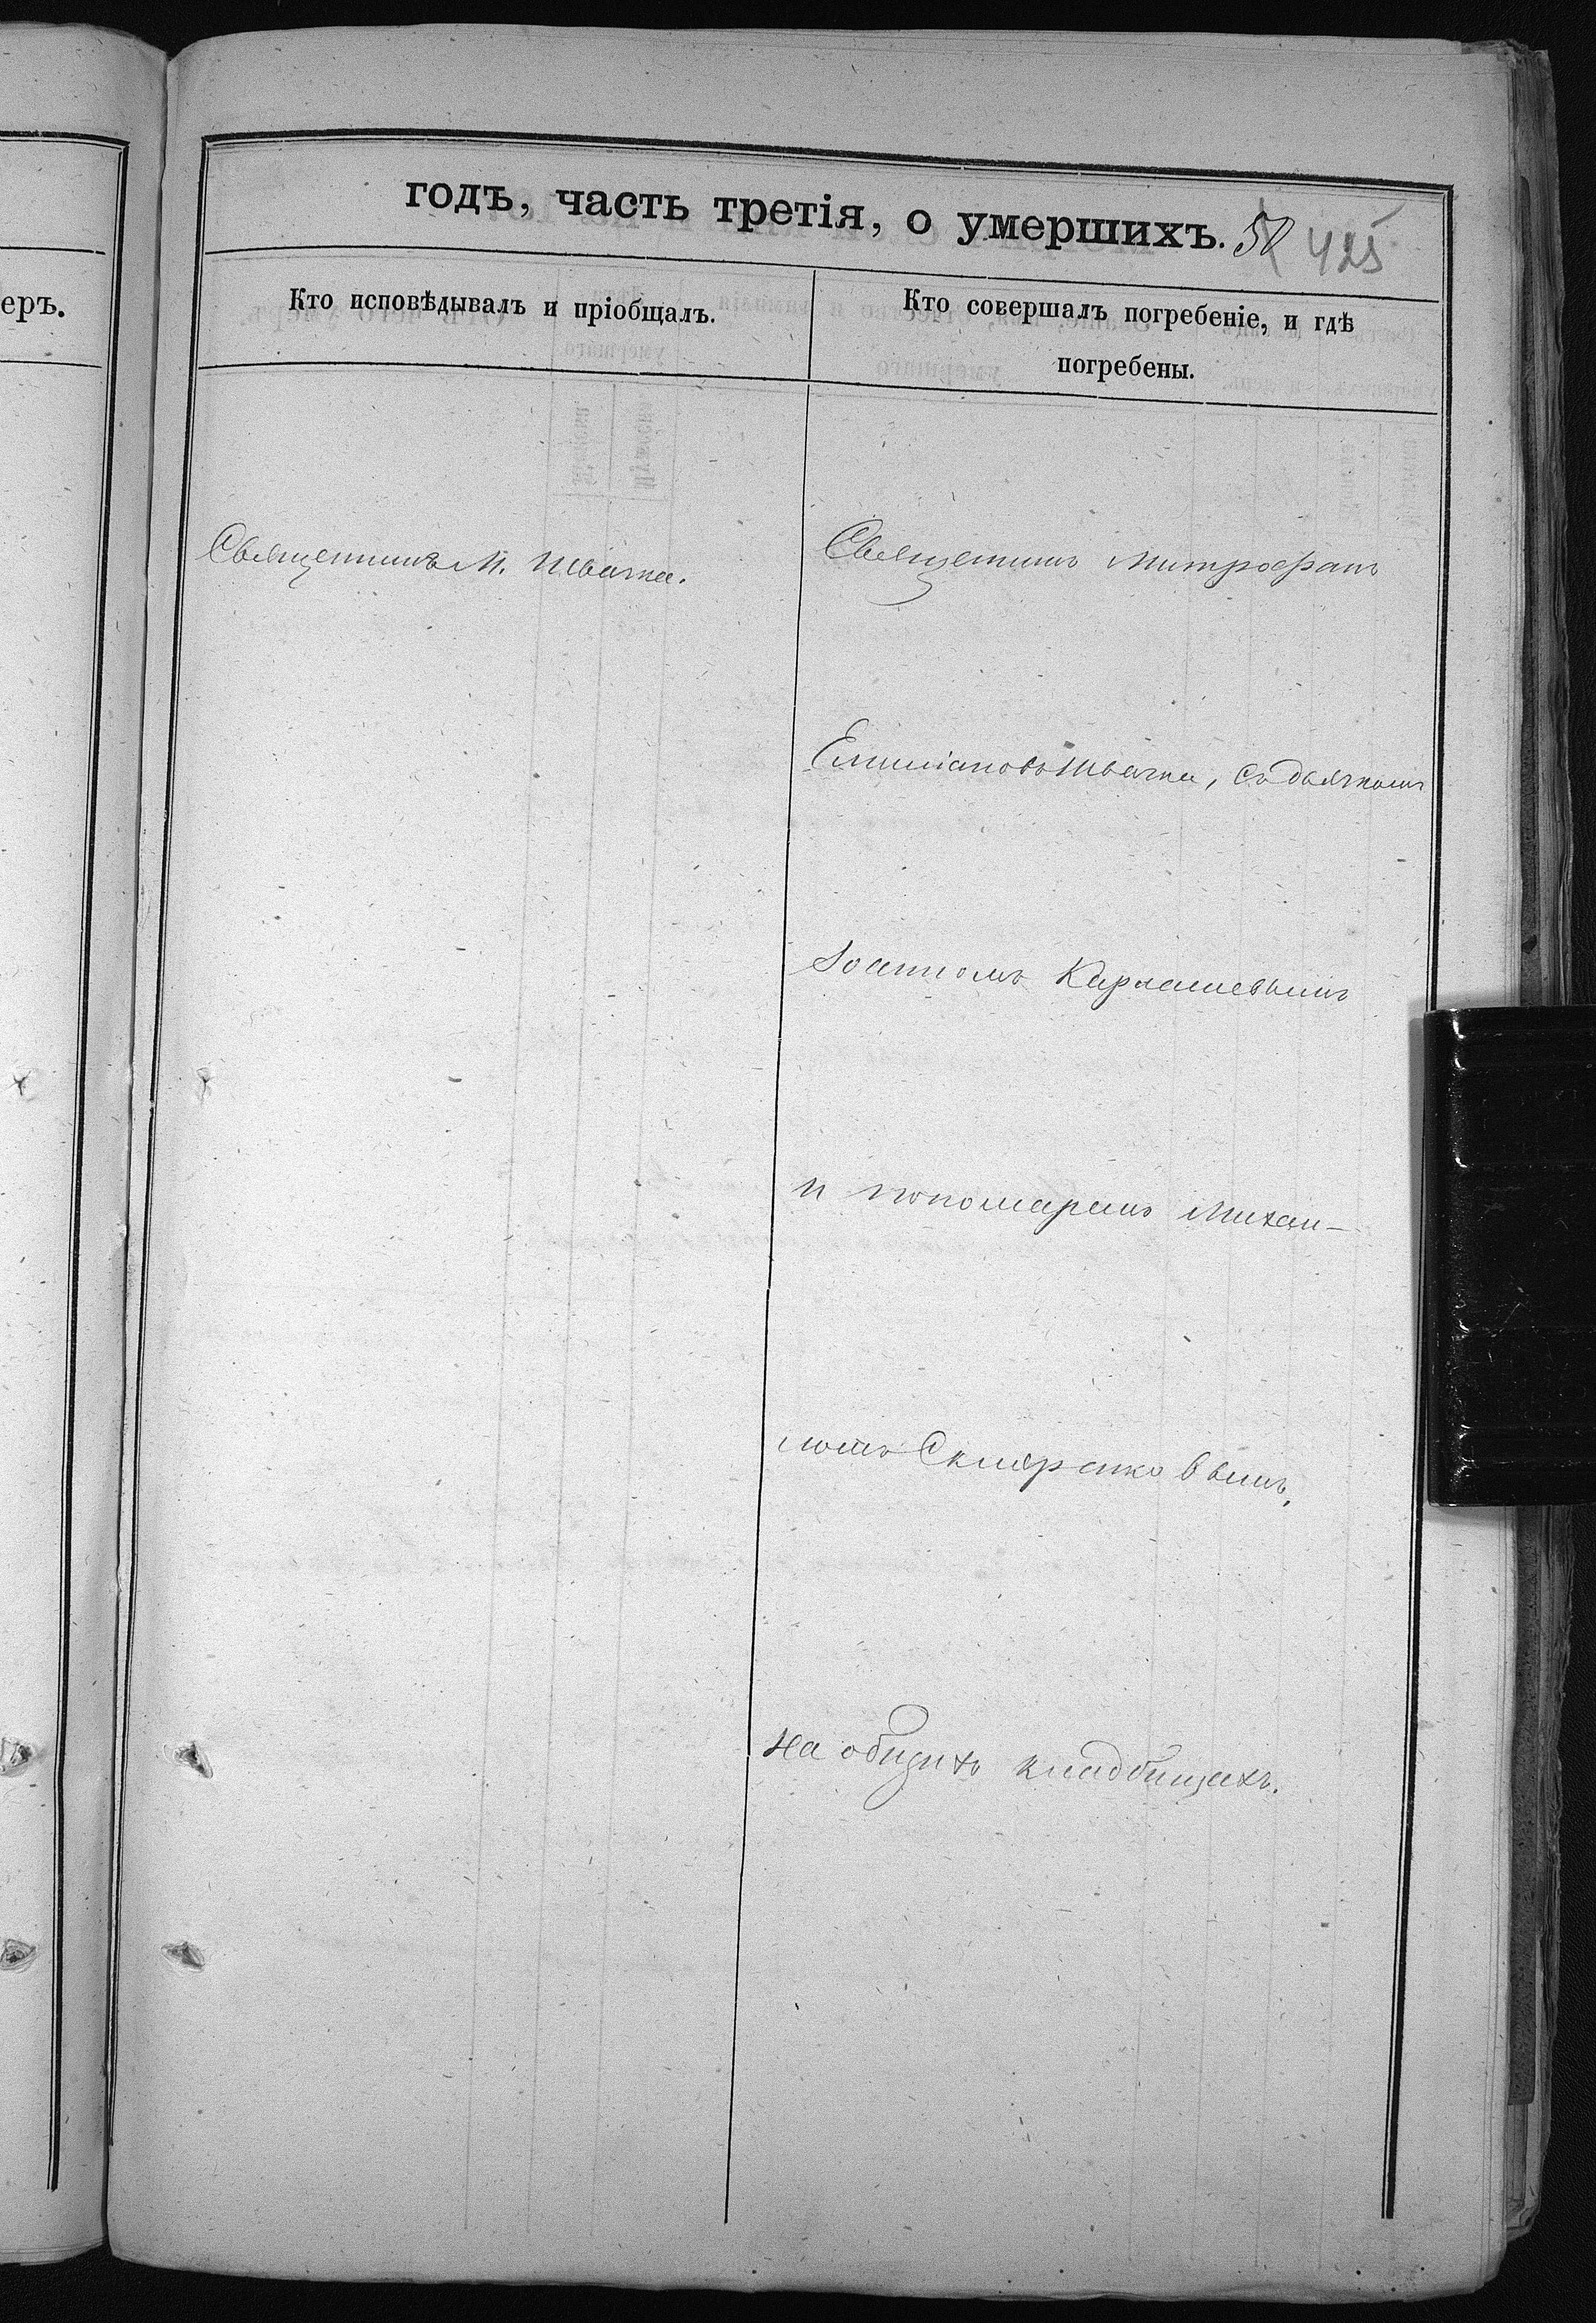 еръ.
годъ, часть третія, о умершихъ. 50 425
Кто исповѣдывалъ и пріобщалъ.
Кто совершалъ погребеніе, и гдѣ
погребены.
Священникъ М. Швачка.
Священникъ Митрофанъ
Емиліановъ Швачка, съ дьячкомъ
Іоанномъ Карпашевымъ
и пономаремъ Михаи-
ломъ Скляренковымъ,
на общихъ кладбищахъ.